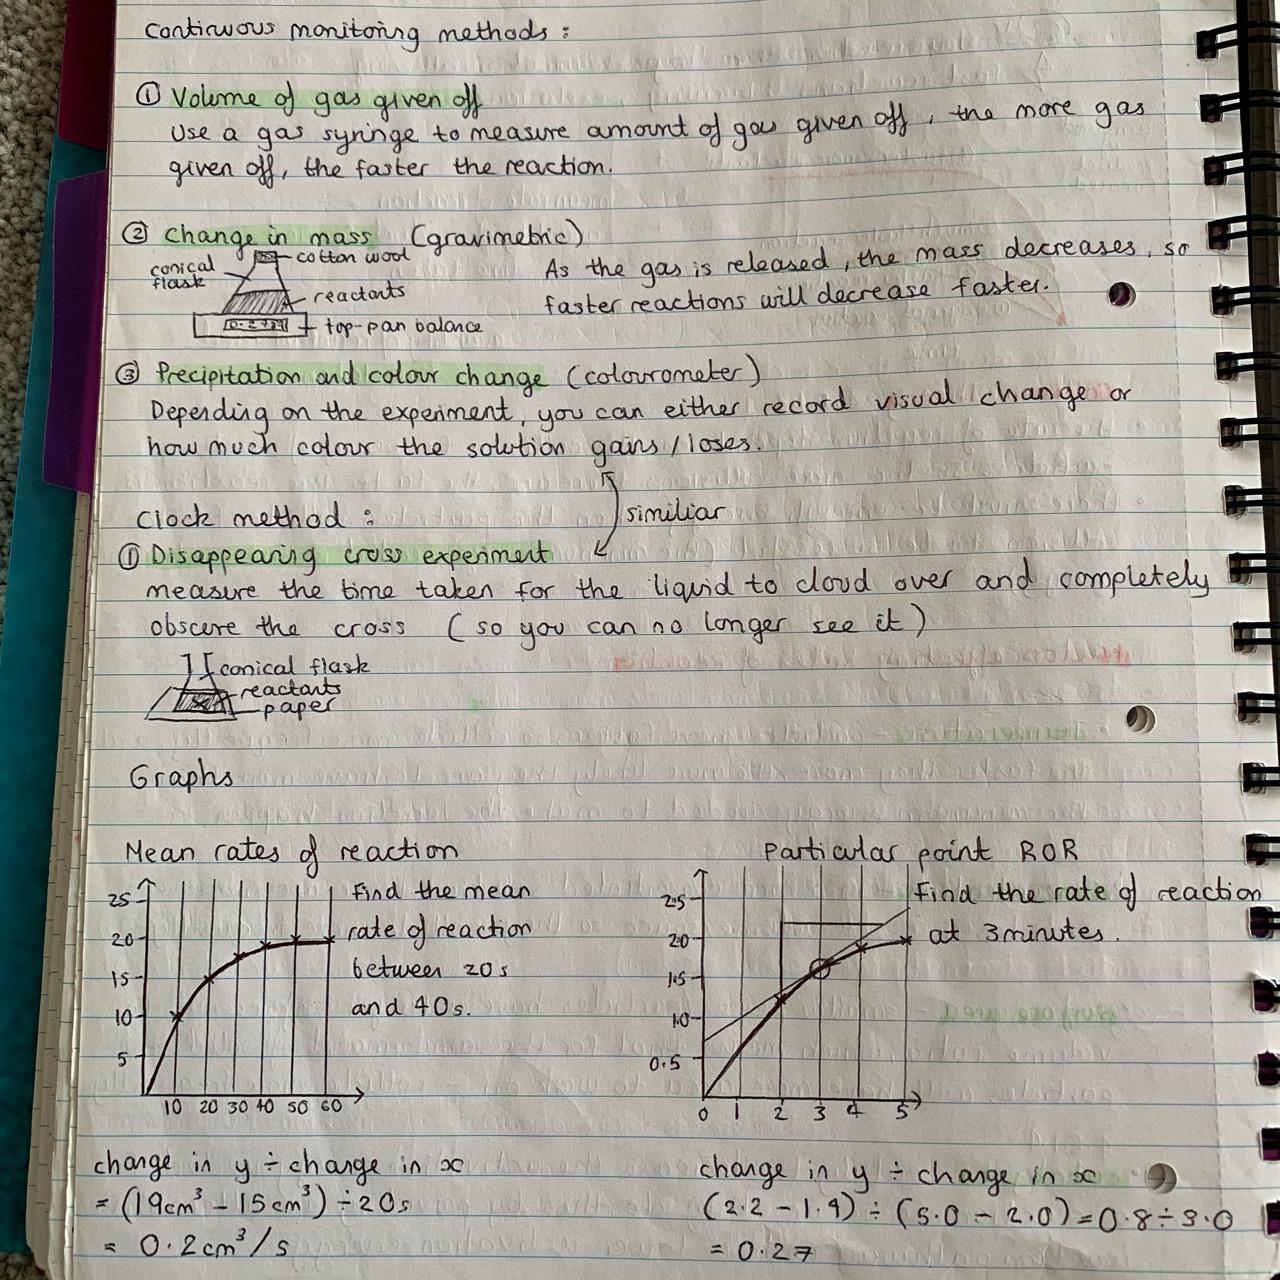 continuous monitoring methods :
① Volume of gas given off
Use a gas syringe to measure amount of gas given off, the more gas
given off, the faster the reaction.
② Change in mass (gravimetric)
conical
flask
cotton wool
reactants
top-pan balance
As the gas is released, the mass decreases, so
faster reactions will decrease faster.
③ Precipitation and colour change (colourometer)
Depending on the experiment, you can either record visual change or
how much colour the solution gains/loses.
similiar
Clock method :
① Disappearing cross experiment
measure the time taken for the liquid to cloud over and completely
obscure the cross (so you can no longer see it)
conical flask
reactants
paper
Graphs
Mean rates of reaction
Find the mean
rate of reaction
between 20s
and 40s.
25
20
15
10
5
10 20 30 40 50 60
change in y ÷ change in x
= (19cm³ - 15cm³) ÷ 20s
= 0.2cm³/s
Particular point ROR
Find the rate of reaction
at 3minutes.
2.5
2.0
1.5
1.0
0.5
0 1 2 3 4 5
change in y ÷ change in x
(2.2 - 1.4) ÷ (5.0 - 2.0) = 0.8 ÷ 3.0
= 0.27